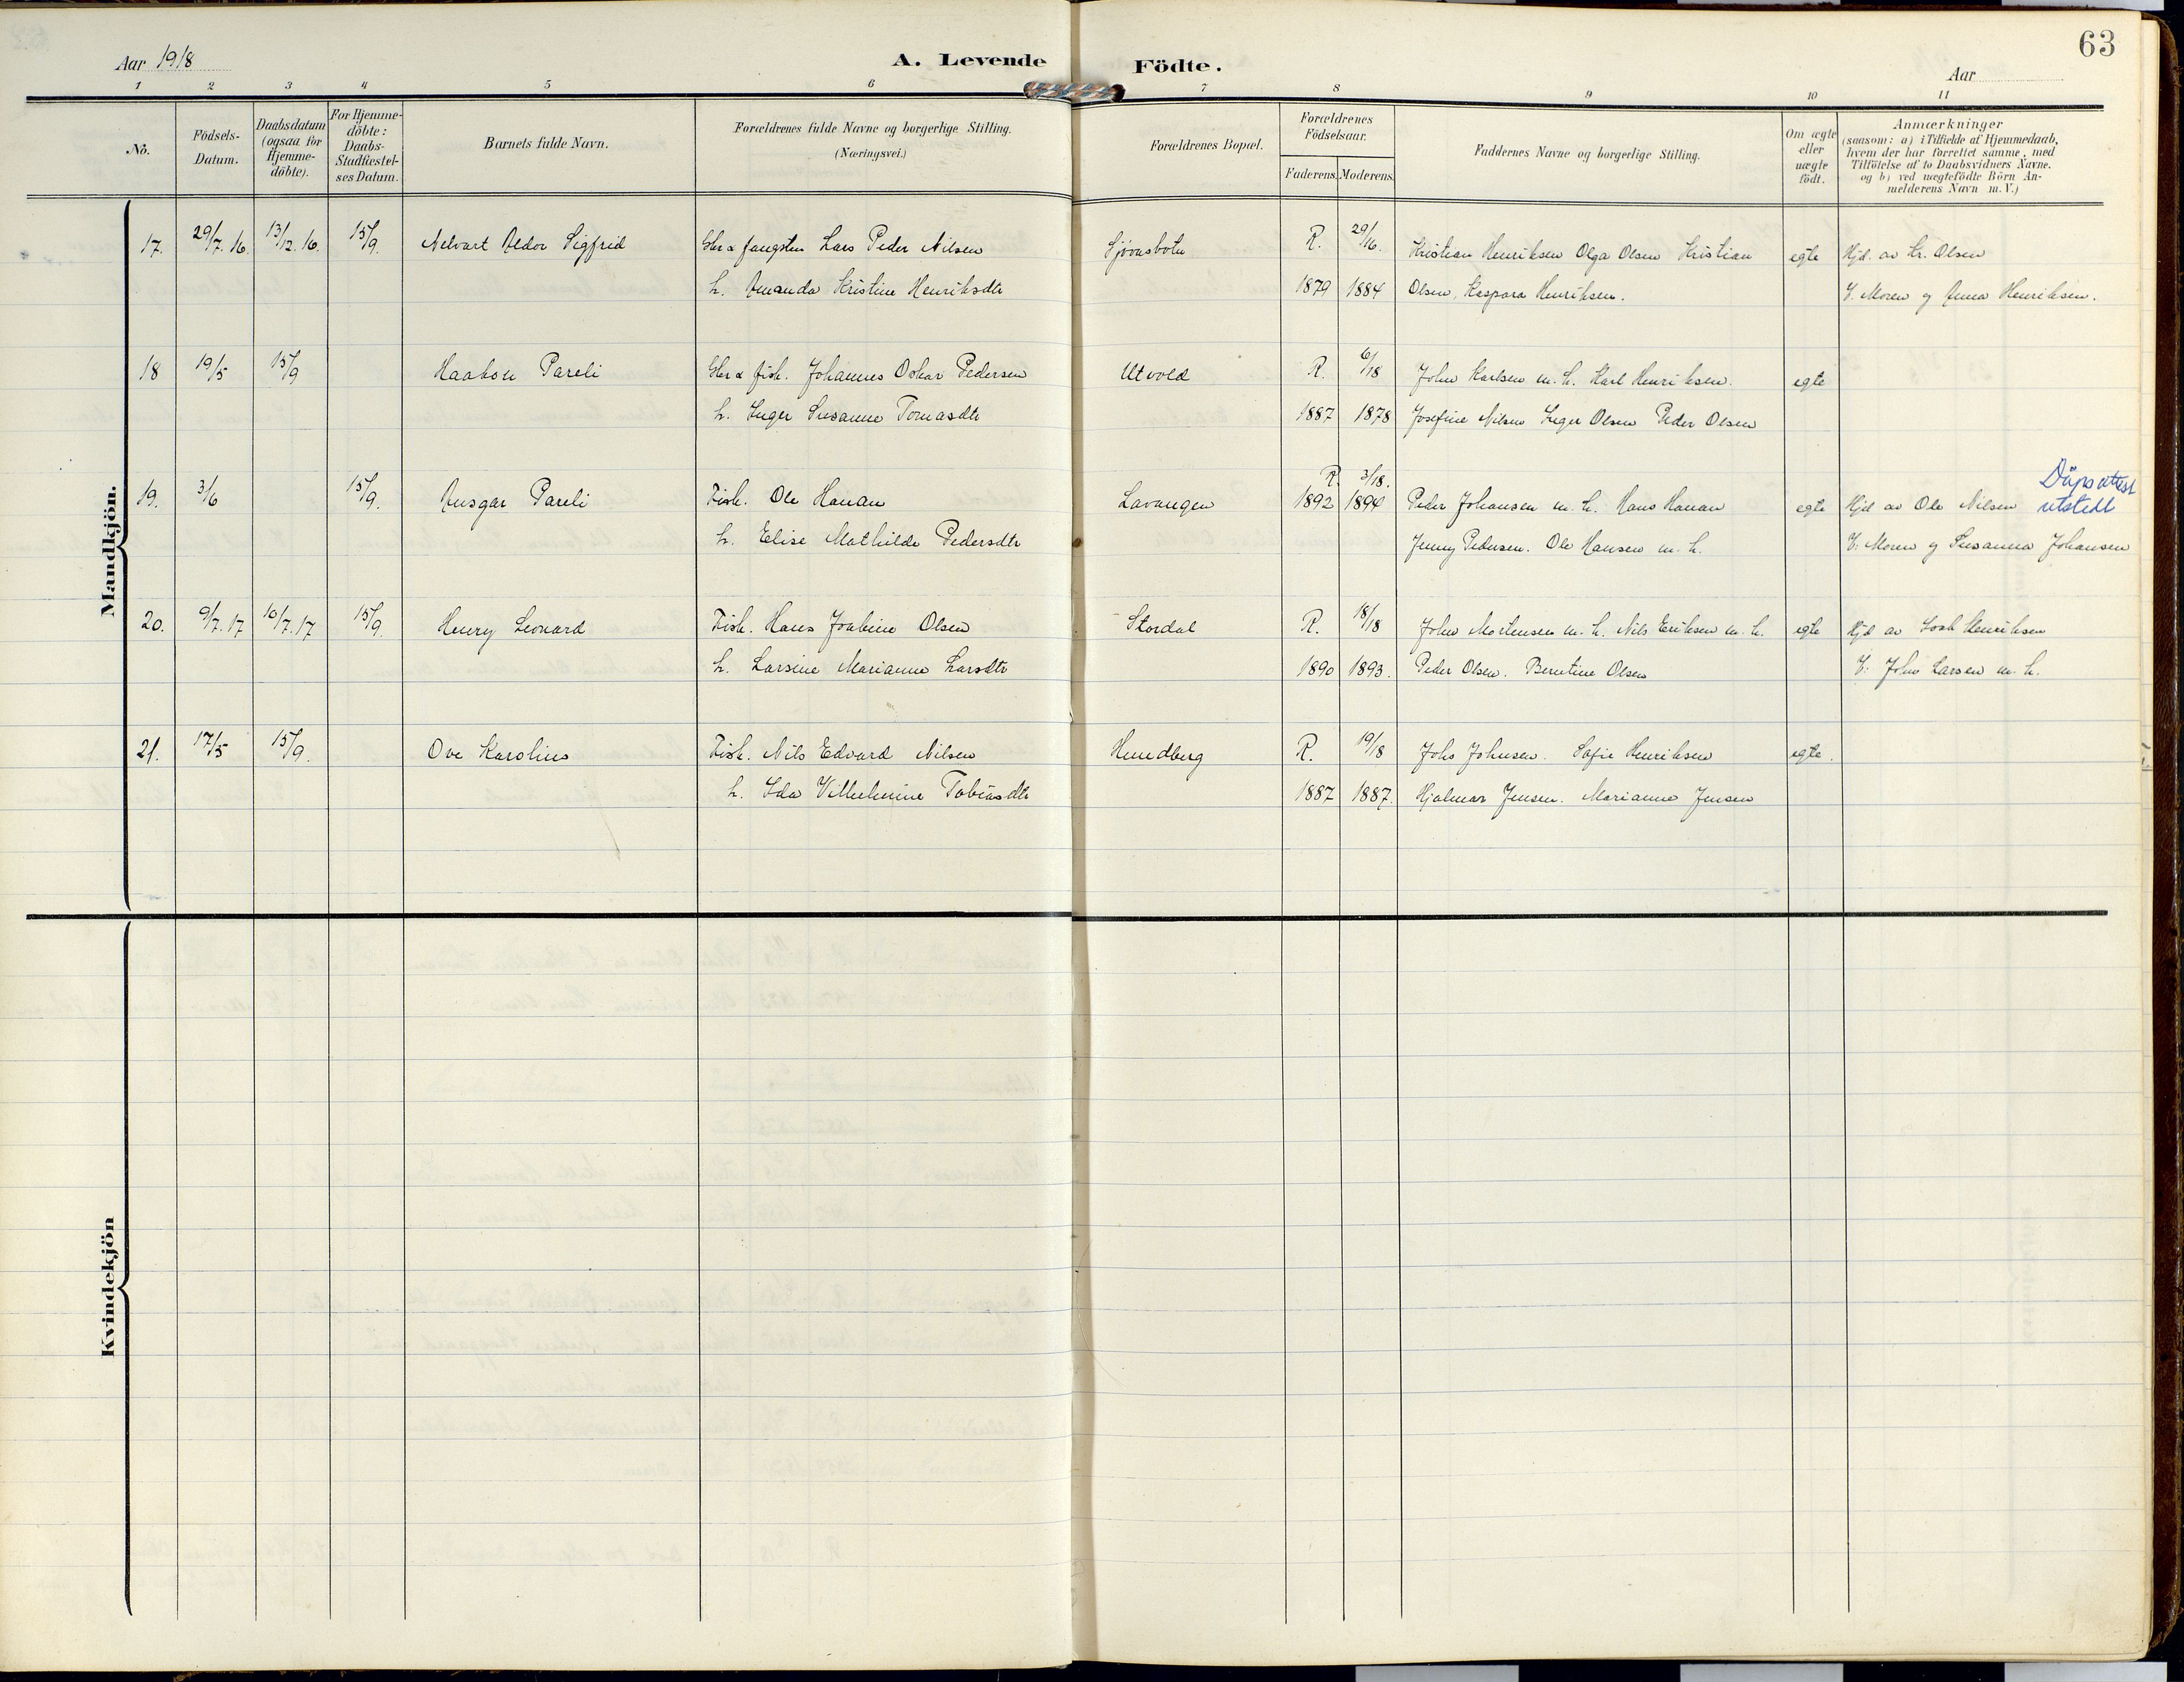 63
Aar 1918 A. Levende Födte. Aar
1 2 3 4 5 6 7 8 9 10 11
No.
Födsels-Datum.
Daabsdatum (ogsaa for Hjemme-döbte).
For Hjemme-döbte: Daabs-Stadfæstel-ses Datum.
Barnets fulde Navn.
Forældrenes fulde Navne og borgerlige Stilling.
(Næringsvei.)
Forældrenes Bopæl.
Forældrenes Födselsaar.
Faderens. Moderens.
Faddernes Navne og borgerlige Stilling.
Om ægte eller uægte födt.
Anmærkninger
(saasom: a) i Tilfælde af Hjemmedaab,
hvem der har forrettet samme, med
Tilföielse af to Daabsvidners Navne.
og b) ved uægtefödte Börn An-
melderens Navn m. V.)
Mandkjön.
17. 29/7.16. 13/12.16. 15/9. Sigfrid Lars Peder Nilsen R. 29/16. Kristian Henriksen Olga Olsen Kristian egte Hjd. av Kr. Olsen
h. Amanda Kristine Henriksdtr 1879 1884 Olsen, Kaspara Henriksen. V. Moren og Anna Henriksen.
18 19/5 15/9 Haakon Pareli fisk. Johannes Oskar Pedersen Utvold R. 6/18 John Karlsen m. h. Karl Henriksen. egte
h. Inger Susanne Tomasdtr 1887 1878 Josefine Nilsen Inger Olsen Peder Olsen
R. 3/18. Dåpsattest
19. 3/6 15/9. Ansgar Pareli Fisk. Ole Hanan Lavangen 1892 1894 Peder Johansen m. h. Hans Hanan egte Hjd av Ole Nilsen utstedt
h. Elise Mathilde Pedersdtr Jenny Pedersen. Ole Hansen m. h. V: Moren og Susanna Johansen
20. 9/7.17 10/7.17 15/9. Henry Leonard Fisk. Hans Joakim Olsen Stordal R. 18/18 John Mortensen m. h. Nils Eriksen m. h. egte Hjd av Henriksen
h. Larsine Marianne Larsdtr 1890 1893. Peder Olsen. Berntine Olsen V: John Larsen m. h.
21. 17/5 15/9. Ove Karolius Fisk. Nils Edvard Nilsen Hundberg R. 19/18 Johs Johnsen. Sofie Henriksen egte.
h. Ida Vilhelmine Tobiasdtr 1887 1887. Hjalmar Jensen. Marianne Jensen
Kvindekjön